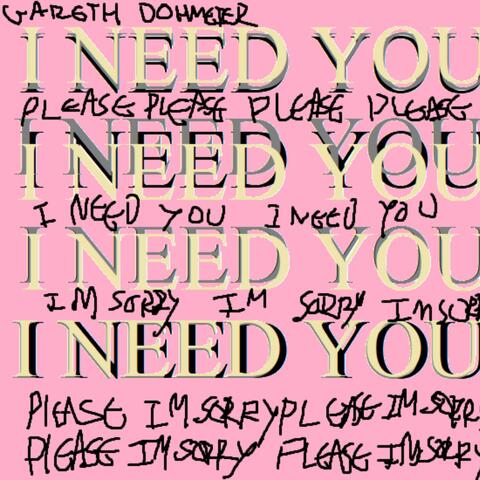 GARETH DOHMEIER
I NEED YOU
PLEASE PLEASE PLEASE PLEASE
I NEED YOU
I NEED YOU I NEED YOU
I NEED YOU
IM SORRY IM SORRY IM SORR
I NEED YOU
PLEASE IM SORRY PLEASE IM SORR
PLEASE IM SORRY PLEASE IM SORRY